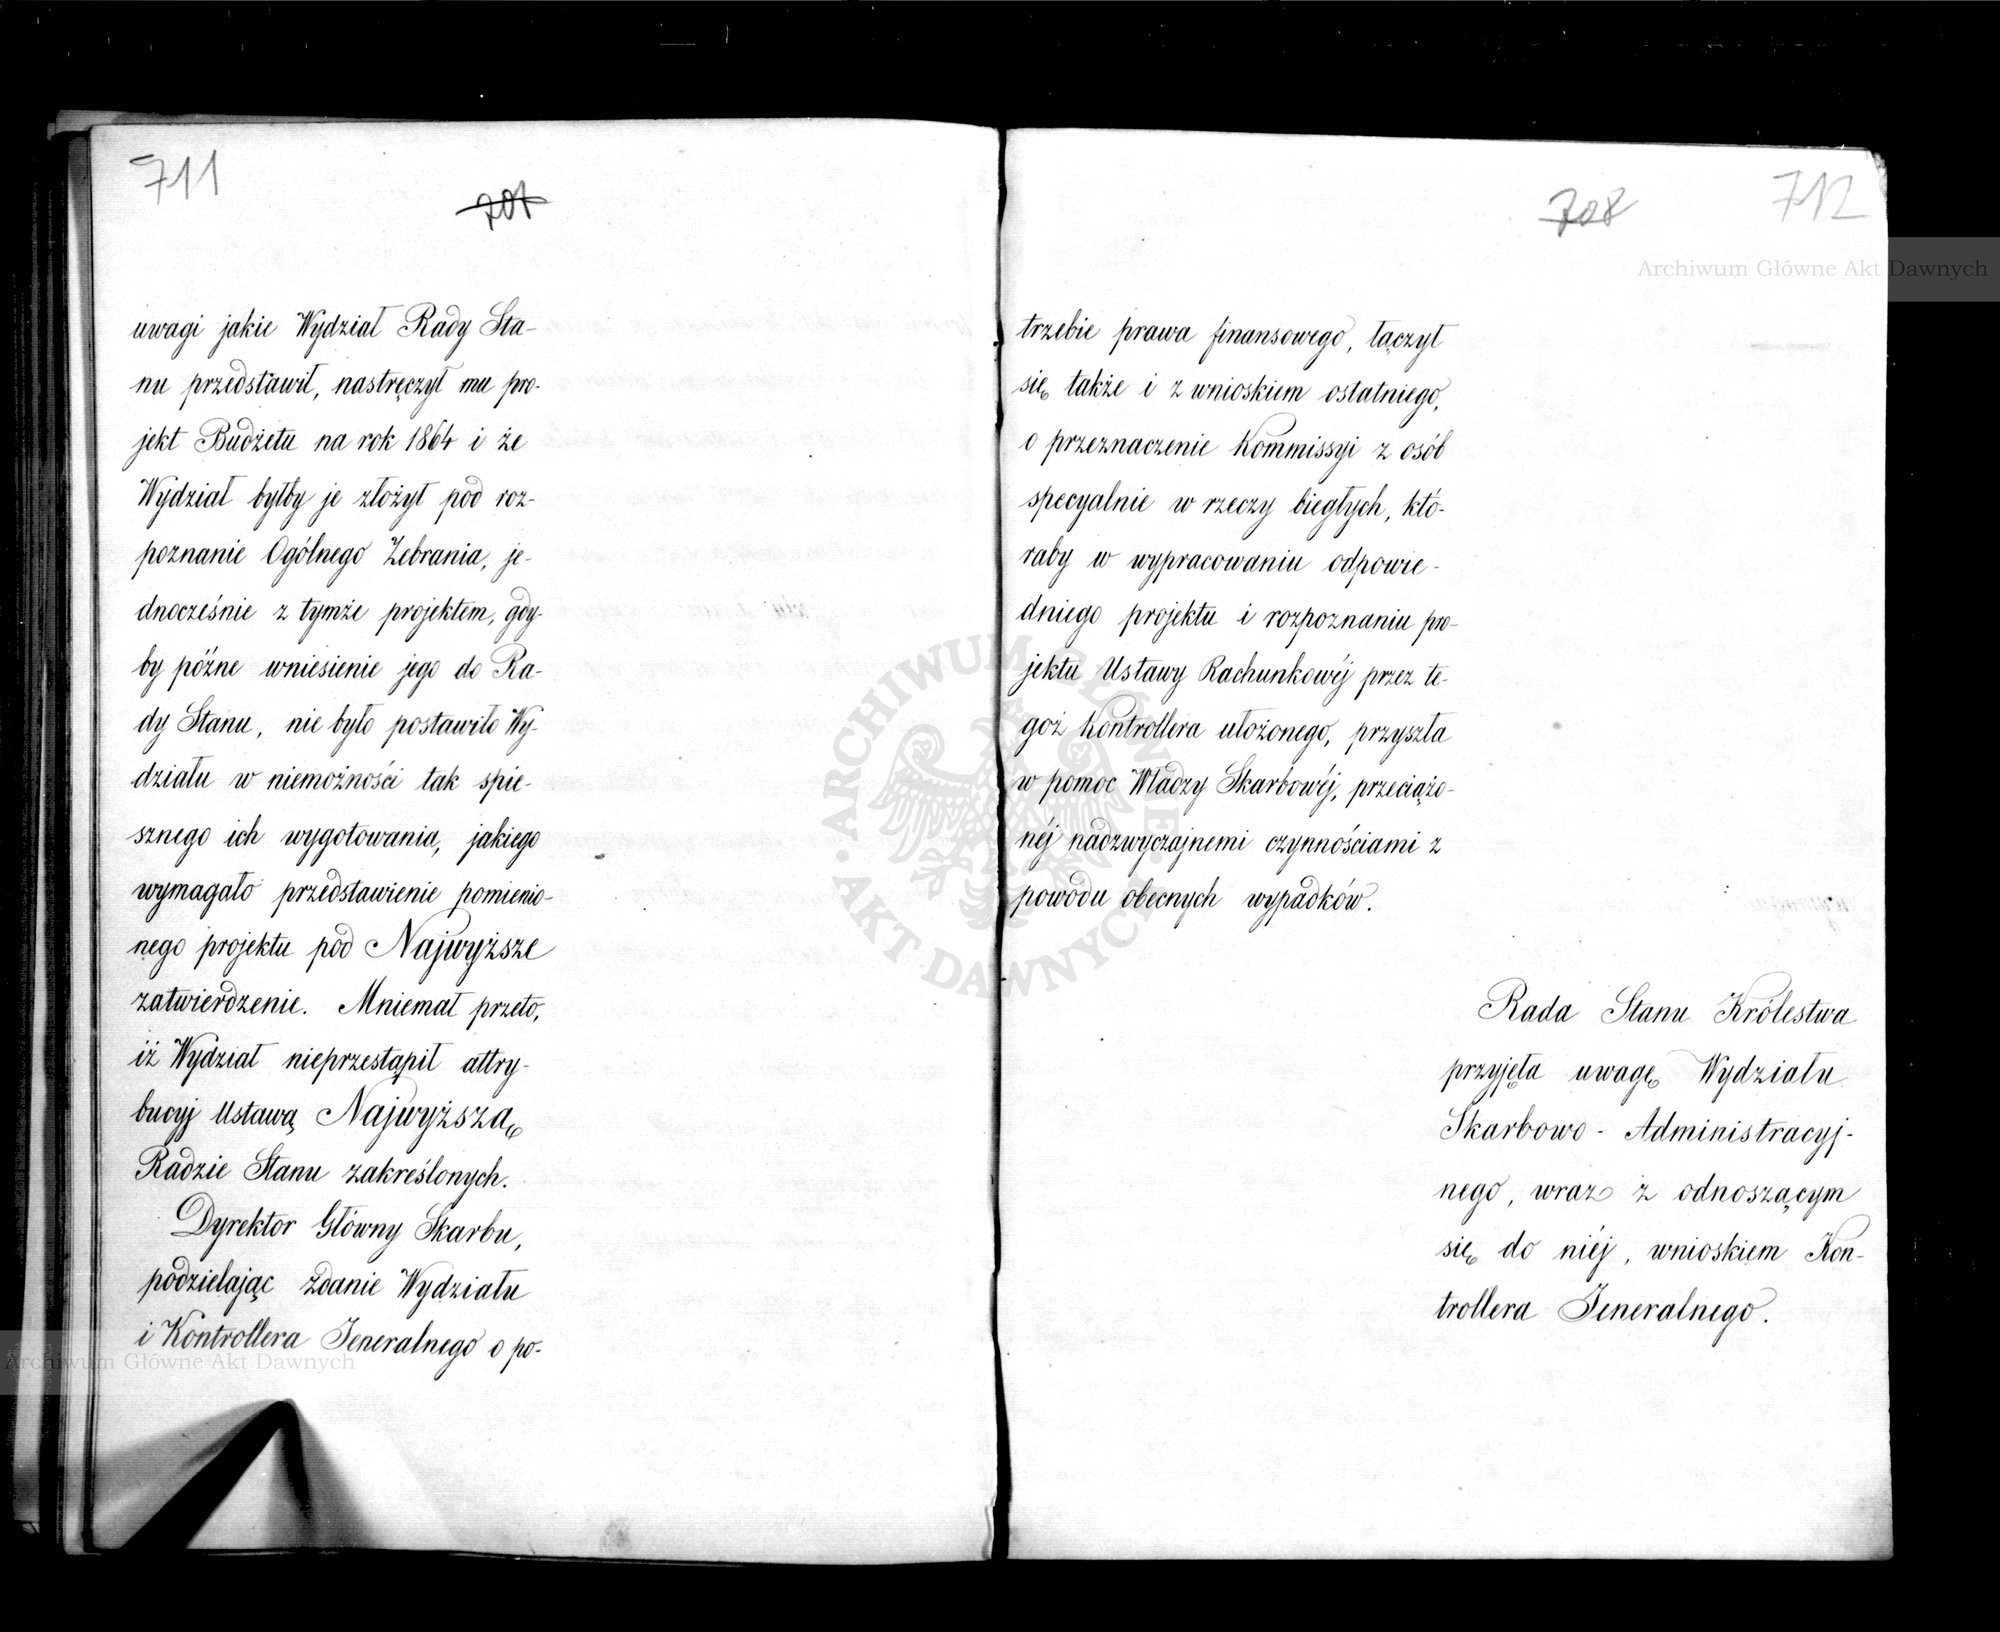 711
707
uwagi jakie Wydział Rady Sta-
nu przedstawił, nastręczył mu pro-
jekt Budżetu na rok 1864 i że
Wydział byłby je złożył pod roz-
poznanie Ogólnego Zebrania, je-
dnocześnie z tymże projektem, gdy-
by późne wniesienie jego do Ra-
dy Stanu, nie było postawiło Wy-
działu w niemożności tak spie-
sznego ich wygotowania, jakiego
wymagało przedstawienie pomienio-
nego projektu pod Najwyższe
zatwierdzenie. Mniemał przeto,
iż Wydział nieprzestąpił attry-
bucyj Ustawą Najwyższą
Radzie Stanu zakreślonych.
Dyrektor Główny Skarbu,
podzielając zdanie Wydziału
i Kontrollera Jeneralnego o po-
708
712
trzebie prawa finansowego, łączył
się także i z wnioskiem ostatniego,
o przeznaczenie Kommissyi z osób
specyalnie w rzeczy biegłych, któ-
raby w wypracowaniu odpowie-
dniego projektu i rozpoznaniu pro-
jektu Ustawy Rachunkowéj przez te-
goż Kontrollera ułożonego, przyszła
w pomoc Władzy Skarbowéj, przeciążo-
néj nadzwyczajnemi czynnościami z
powodu obecnych wypadków.
Rada Stanu Królestwa
przyjęła uwagę Wydziału
Skarbowo-Administracyj-
nego, wraz z odnoszącym
się do niéj, wnioskiem Kon-
trollera Jeneralnego.
Archiwum Główne Akt Dawnych
Archiwum Główne Akt Dawnych
ARCHIWUM GŁÓWNE
AKT DAWNYCH